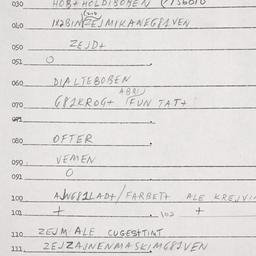 030 HOB+HOLDIBOMEN
040 IM2BIN ZEJMIKANEG81VEN
050 ZEJD+
051 O
060 DIALTEBOBEN
ABRIJ
070 G81KROG+ FUN TAT+
071
080 OFTER
090 VEMEN
091 O
100 AJNG81LAD+/FARBET+ ALE KREJVIN
101 + 102 +
110 ZEJM ALE CUGESHTINT
111 ZEJZAJNENMASKIMG81VEN